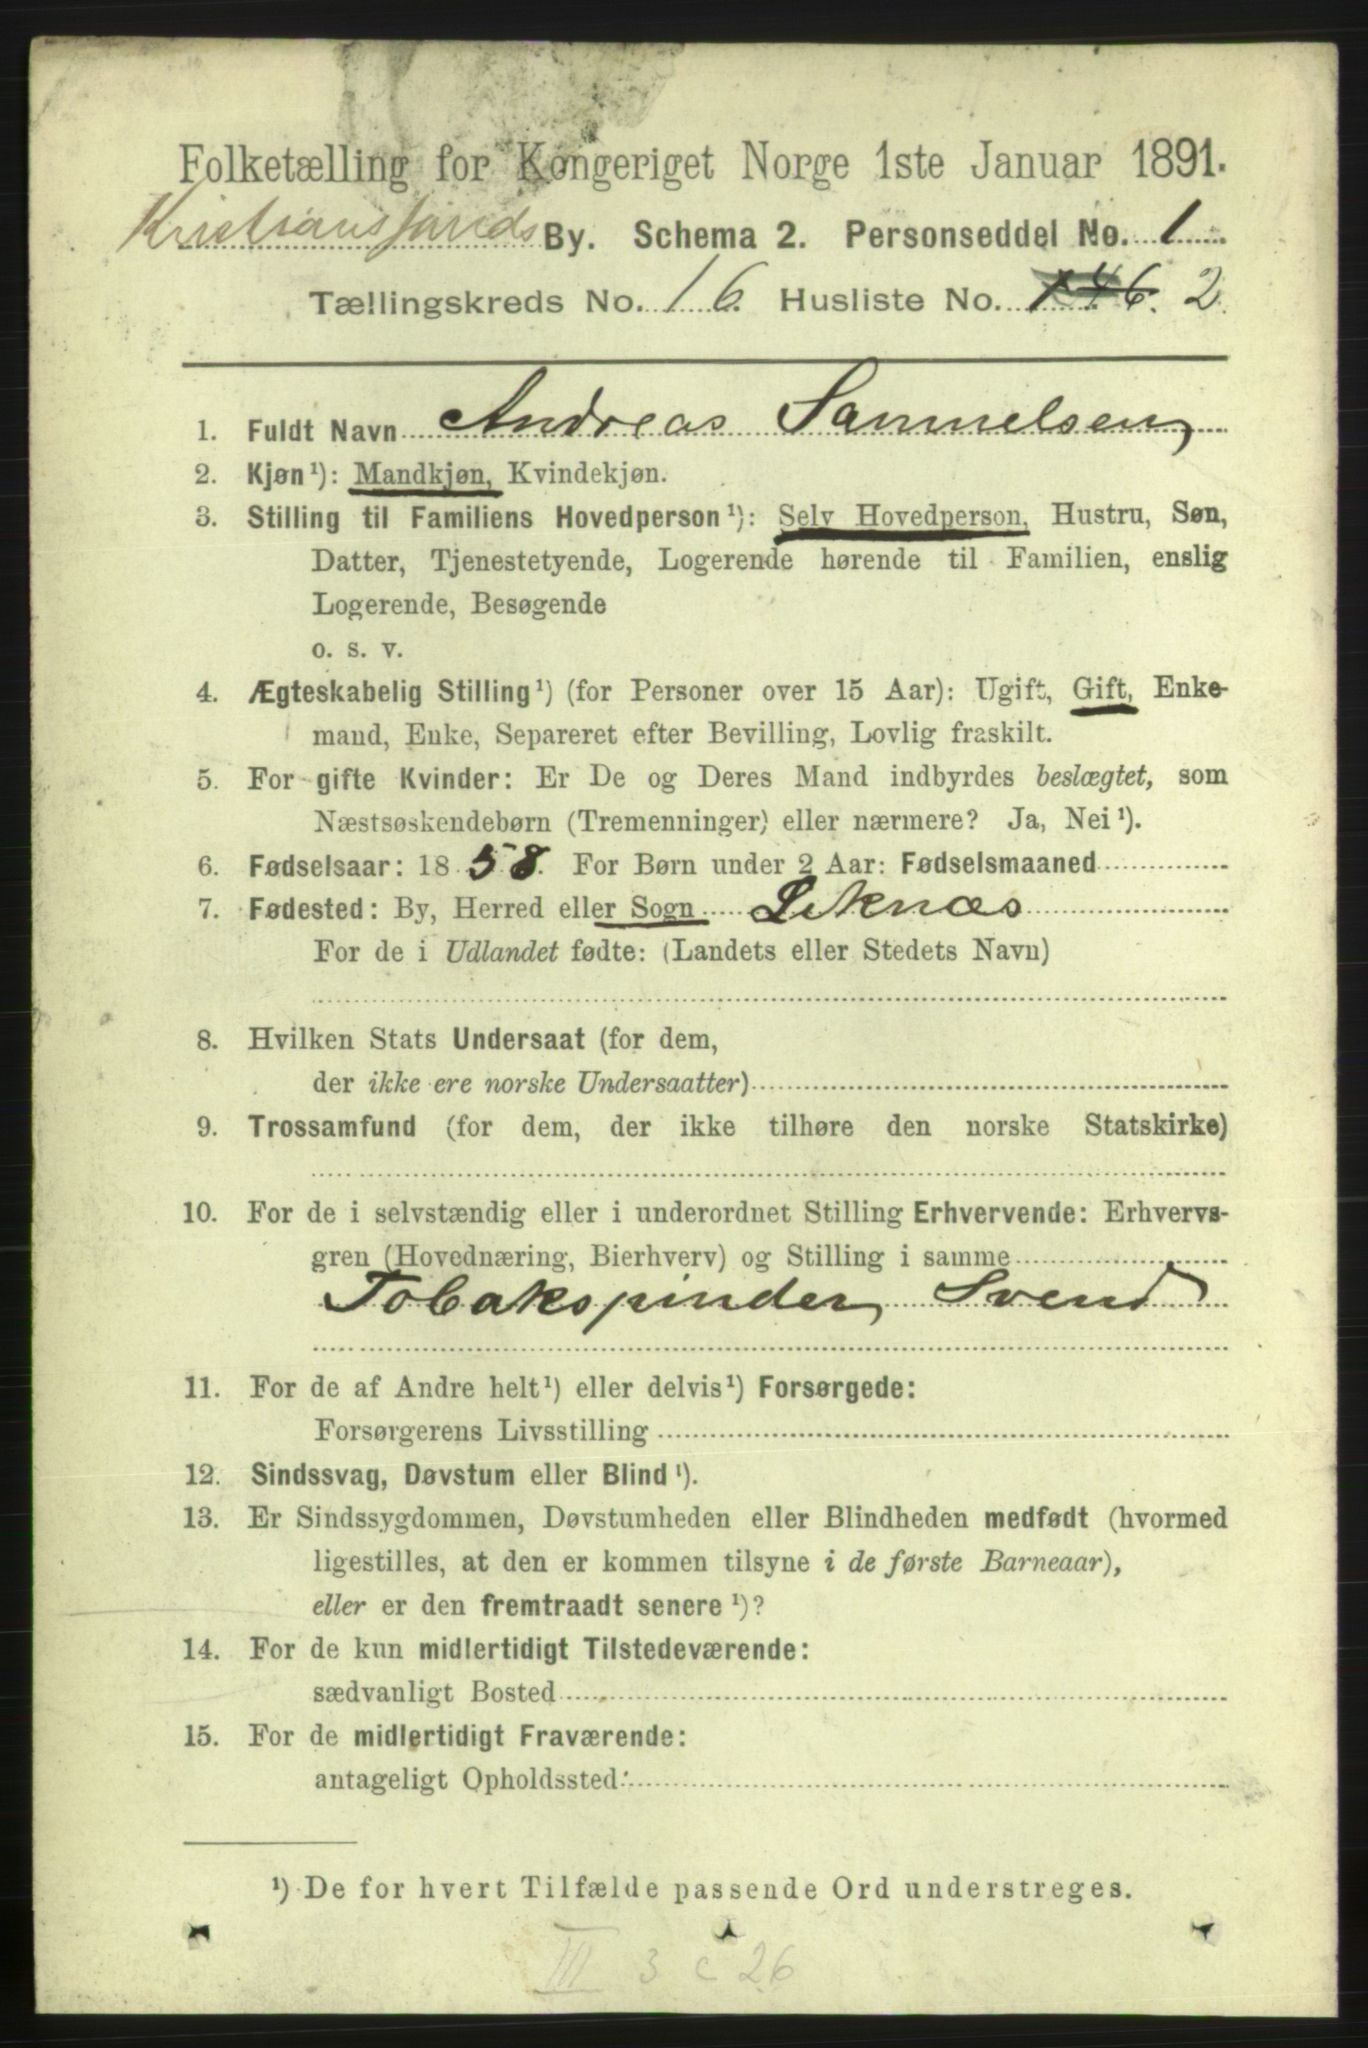 Folketælling for Kongeriget Norge 1ste Januar 1891.
Kristianssands By. Schema 2. Personseddel No. 1
Tællingskreds No. 16 Husliste No. 146. 2
1. Fuldt Navn Andreas Samuelsen
2. Kjøn¹): Mandkjøn, Kvindekjøn.
3. Stilling til Familiens Hovedperson¹): Selv Hovedperson, Hustru, Søn,
Datter, Tjenestetyende, Logerende hørende til Familien, enslig
Logerende, Besøgende
o. s. v.
4. Ægteskabelig Stilling¹) (for Personer over 15 Aar): Ugift, Gift, Enke-
mand, Enke, Separeret efter Bevilling, Lovlig fraskilt.
5. For gifte Kvinder: Er De og Deres Mand indbyrdes beslægtet, som
Næstsøskendebørn (Tremenninger) eller nærmere? Ja, Nei¹).
6. Fødselsaar: 1858. For Børn under 2 Aar: Fødselsmaaned
7. Fødested: By, Herred eller Sogn Leknæs
For de i Udlandet fødte: (Landets eller Stedets Navn)
8. Hvilken Stats Undersaat (for dem,
der ikke ere norske Undersaatter)
9. Trossamfund (for dem, der ikke tilhøre den norske Statskirke)
10. For de i selvstændig eller i underordnet Stilling Erhvervende: Erhvervs-
gren (Hovednæring, Bierhverv) og Stilling i samme
Tobakspinder, Svend
11. For de af Andre helt¹) eller delvis¹) Forsørgede:
Forsørgerens Livsstilling
12. Sindssvag, Døvstum eller Blind¹).
13. Er Sindssygdommen, Døvstumheden eller Blindheden medfødt (hvormed
ligestilles, at den er kommen tilsyne i de første Barneaar),
eller er den fremtraadt senere¹)?
14. For de kun midlertidigt Tilstedeværende:
sædvanligt Bosted
15. For de midlertidigt Fraværende:
antageligt Opholdssted:
¹) De for hvert Tilfælde passende Ord understreges.
III 3 c 26